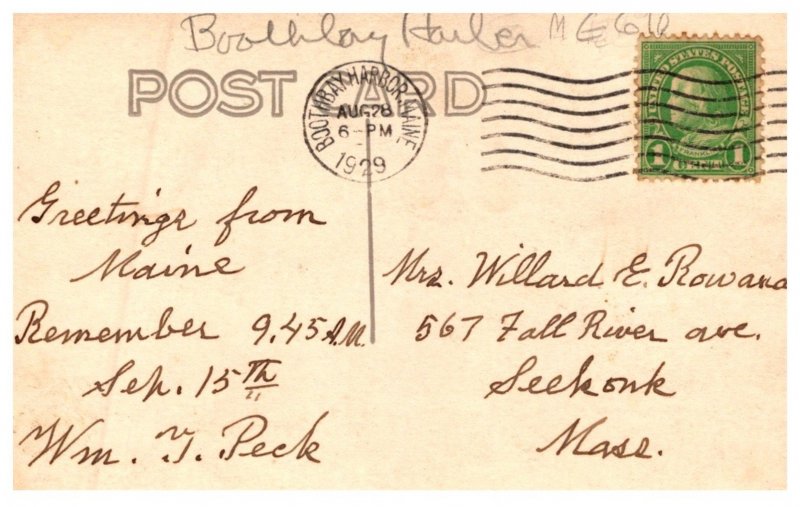 Boothbay Harbor M E
POST CARD
BOOTHBAY HARBOR, MAINE
AUG 28
6-PM
1929
UNITED STATES POSTAGE
FRANKLIN
1 CENT 1
Greetings from
Maine
Remember 9.45 A.M.
Sep. 15th
Wm. T. Peck
Mrs. Willard E. Rowand
567 Fall River ave.
Seekonk
Mass.